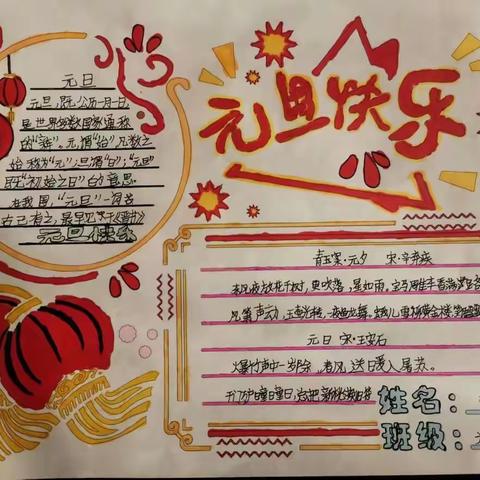 元旦
元旦,既公历一月一日,
是世界多数国家通称
的"新年"。元,谓"始",凡数之
始称为"元";旦,谓"日";"元旦"
既"初始之日"的意思
在我国,"元旦"一词古
古已有之,最早见于《晋书》
元旦快乐
元旦快乐
青玉案·元夕 宋·辛弃疾
东风夜放花千树,更吹落,星如雨,宝马雕车香满路
凤箫声动,玉壶光转,一夜鱼龙舞。蛾儿雪柳黄金缕
元日 宋·王安石
爆竹声中一岁除,春风送暖入屠苏。
千门万户曈曈日,总把新桃换旧符
姓名:
班级: